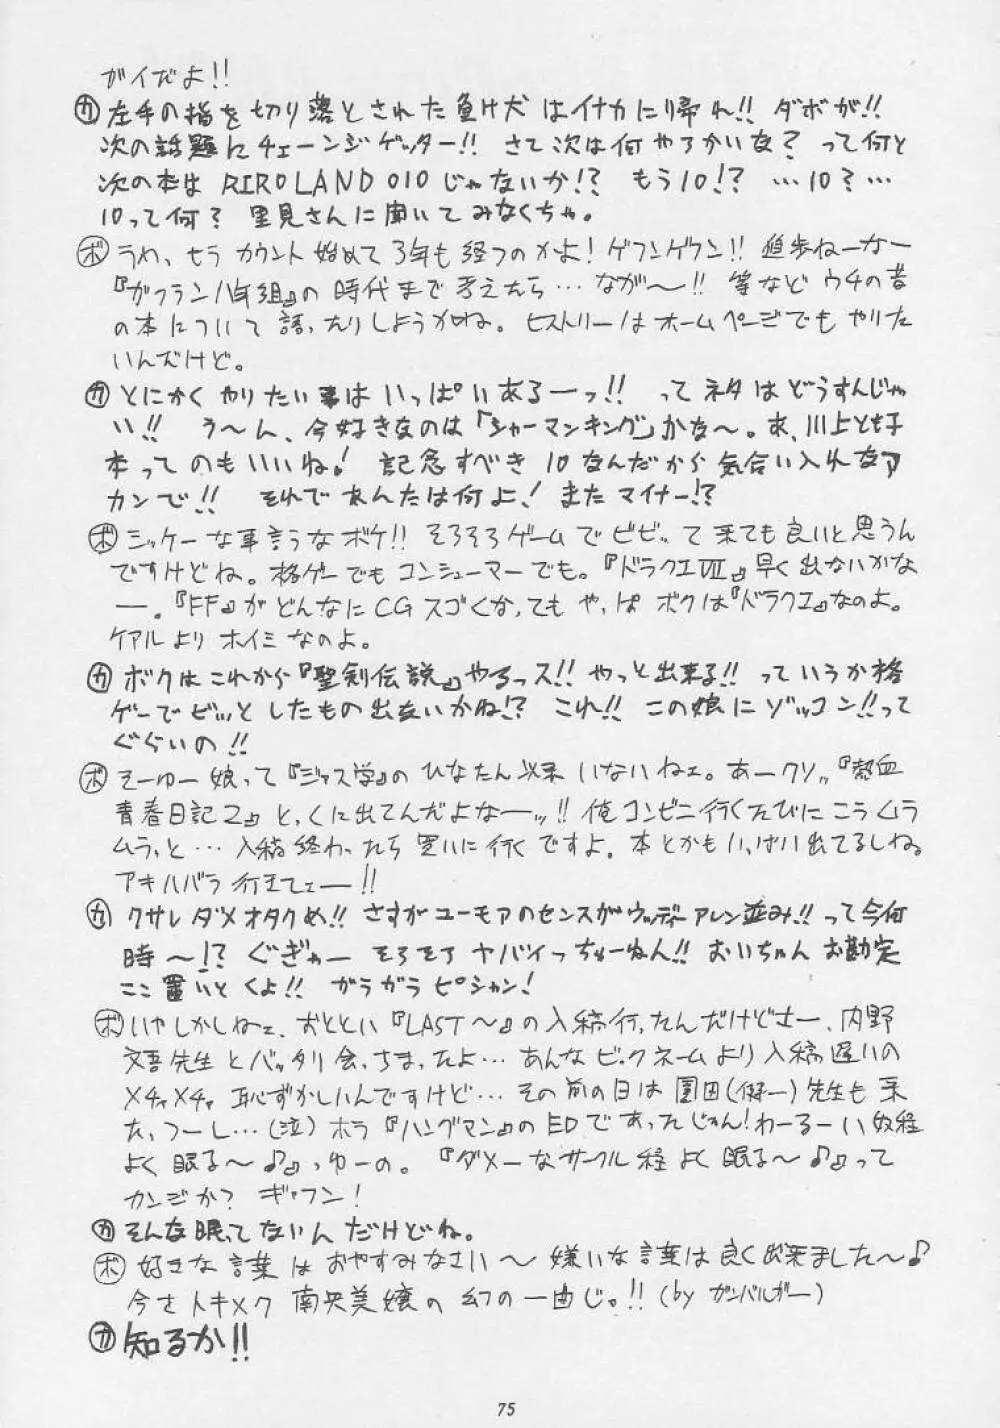 ガイだよ!!
㋕左手の指を切り落とされた負け犬はイナカに帰れ!! ダボが!!
次の話題にチェーンジゲッター!! さて次は何やろかいな? って何と
次の本は RIROLAND 010 じゃないか!? もう10!? …10?…
10って何? 里見さんに聞いてみなくちゃ。
ボ うわ、もうカウント始めて3年も経つのかよ! ゲフンゲフン!! 進歩ねーなー
『ガフラン八年組』の時代まで考えたら…なが〜!! 等などウチの昔
の本について語ったりしようかね。ヒストリーはホームページでもやりた
いんだけど。
㋕とにかくやりたい事はいっぱいあるーっ!! ってネタはどうすんじゃ
い!! う〜ん、今好きなのは「シャーマンキング」かな〜。あ、川上とも子
本ってのもいいね! 記念すべき10なんだから気合い入れなア
カンで!! それであんたは何よ! またマイナー!?
ボ シッケーな事言うなボケ!! そろそろゲームでビビッて来ても良いと思うん
ですけどね。格ゲーでもコンシューマーでも。『ドラクエVII』早く出ないかな
ー。『FF』がどんなにCGスゴくなってもやっぱボクは『ドラクエ』なのよ。
ケアルよりホイミなのよ。
㋕ボクはこれから『聖剣伝説』やるっス!! やっと出来る!! っていうか格
ゲーでビッとしたもの出ないかね!? これ!! この娘にゾッコン!!って
ぐらいの!!
ボ そーゆー娘って『ジャス学』のひなたん以来いないねェ。あークソッ『熱血
青春日記2』とっくに出てんだよなーッ!! 俺コンビニ行くたびにこうムラ
ムラっと…入稿終わったら買いに行くですよ。本とかもいっぱい出てるしね。
アキハバラ行きてェー!!
㋕クサレダメオタクめ!! さすがユーモアのセンスがウッディーアレン並み!!って今何
時〜!? ぐぎゃー そろそろヤバイっちゅーねん!! おいちゃんお勘定
ここ置いとくよ!! ガラガラピシャン!
ボ いやしかしねェ、おととい『LAST〜』の入稿行ったんだけどさー、内野
文吾先生とバッタリ会っちまったよ…あんなビックネームより入稿遅いの
メチャメチャ恥ずかしいんですけど…その前の日は園田(健一)先生も来
たっつーし…(泣) ホラ『ハングマン』のEDであったじゃん! わーるーい奴程
よく眠る〜♪』っゆーの。『ダメーなサークル程よく眠る〜♪』って
カンジか? ギャフン!
㋕そんな眠ってないんだけどね。
ボ 好きな言葉はおやすみなさい〜 嫌いな言葉は良く出来ました〜♪
今さトキメク 南央美嬢の幻の一曲じゃ!! (by ガンバルガー)
㋕知るか!!
75